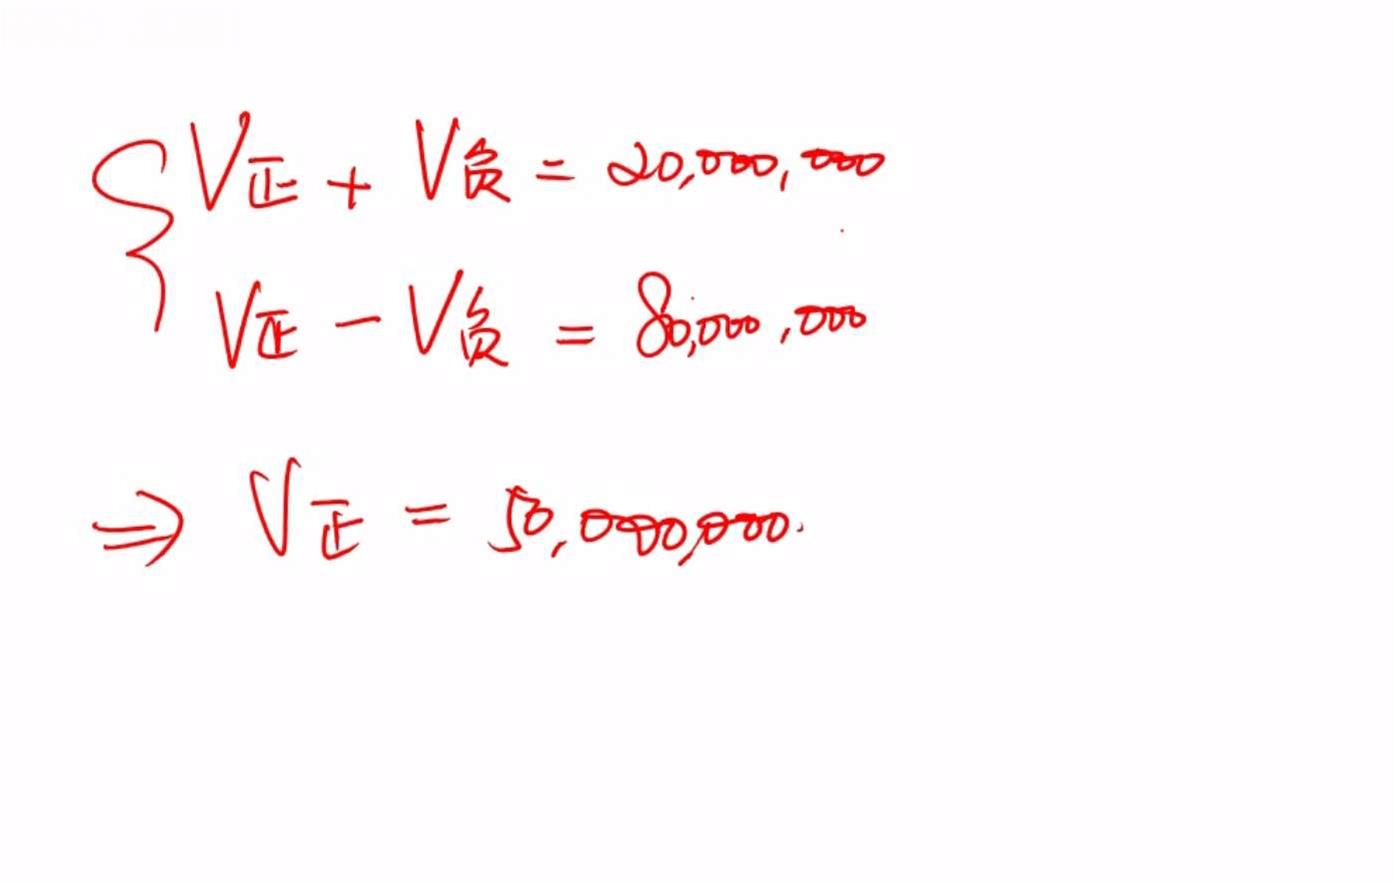 V正 + V负 = 20,000,000
V正 - V负 = 80,000,000
⇒ V正 = 50,000,000.